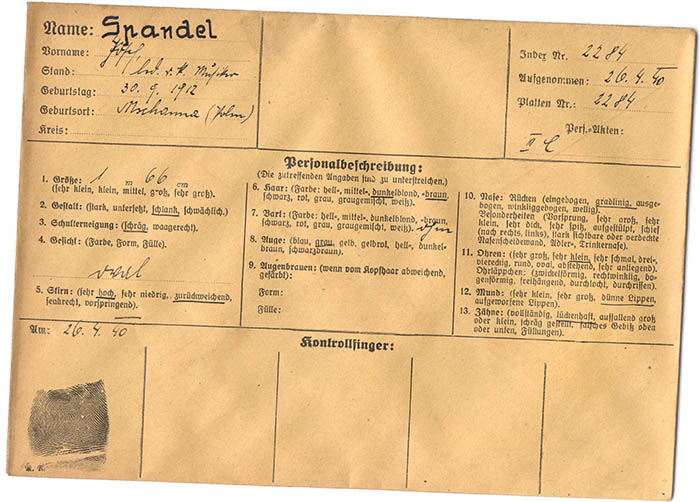 Name: Spandel
Vorname: Josef
Stand: led. v. H. Musiker
Geburtstag: 30. 9. 1912
Geburtsort: Mschanna (Polen)
Kreis:
Index Nr. 2284
Aufgenommen: 26. 4. 40
Platten Nr.: 2284
Pers.-Akten:
III C
Personalbeschreibung:
(Die zutreffenden Angaben sind zu unterstreichen.)
1. Größe: 1 m 66 cm
(sehr klein, klein, mittel, groß, sehr groß).
2. Gestalt: (stark, untersetzt, schlank, schwächlich).
3. Schulterneigung: (schräg, waagerecht).
4. Gesicht: (Farbe, Form, Fülle).
oval
5. Stirn: (sehr hoch, sehr niedrig, zurückweichend,
senkrecht, vorspringend).
6. Haar: (Farbe: hell-, mittel-, dunkelblond, -braun,
schwarz, rot, grau, graugemischt, weiß).
7. Bart: (Farbe: hell-, mittel-, dunkelblond, -braun,
schwarz, rot, grau, graugemischt, weiß). ohne
8. Auge: (blau, grau, gelb, gelbrot, hell-, dunkel-
braun, schwarzbraun).
9. Augenbrauen: (wenn vom Kopfhaar abweichend,
gefärbt):
Form:
Fülle:
10. Nase: Rücken (eingebogen, gradlinig, ausge-
bogen, winkliggebogen, wellig).
Besonderheiten (Vorsprung, sehr groß, sehr
klein, sehr dick, sehr spitz, aufgestülpt, schief
(nach rechts, links), stark sichtbare oder verdeckte
Nasenscheidewand, Adler-, Trinkernase).
11. Ohren: (sehr groß, sehr klein, sehr schmal, drei-
viereckig, rund, oval, abstehend, sehr anliegend).
Ohrläppchen: (zwickelförmig, rechtwinklig, bo-
genförmig, freihängend, durchlocht, durchrissen).
12. Mund: (sehr klein, sehr groß, dünne Lippen,
aufgeworfene Lippen).
13. Zähne: (vollständig, lückenhaft, auffallend groß
oder klein, schräg gestellt, falsches Gebiß oben
oder unten, Füllungen).
Am: 26. 4. 40
Kontrollfinger: